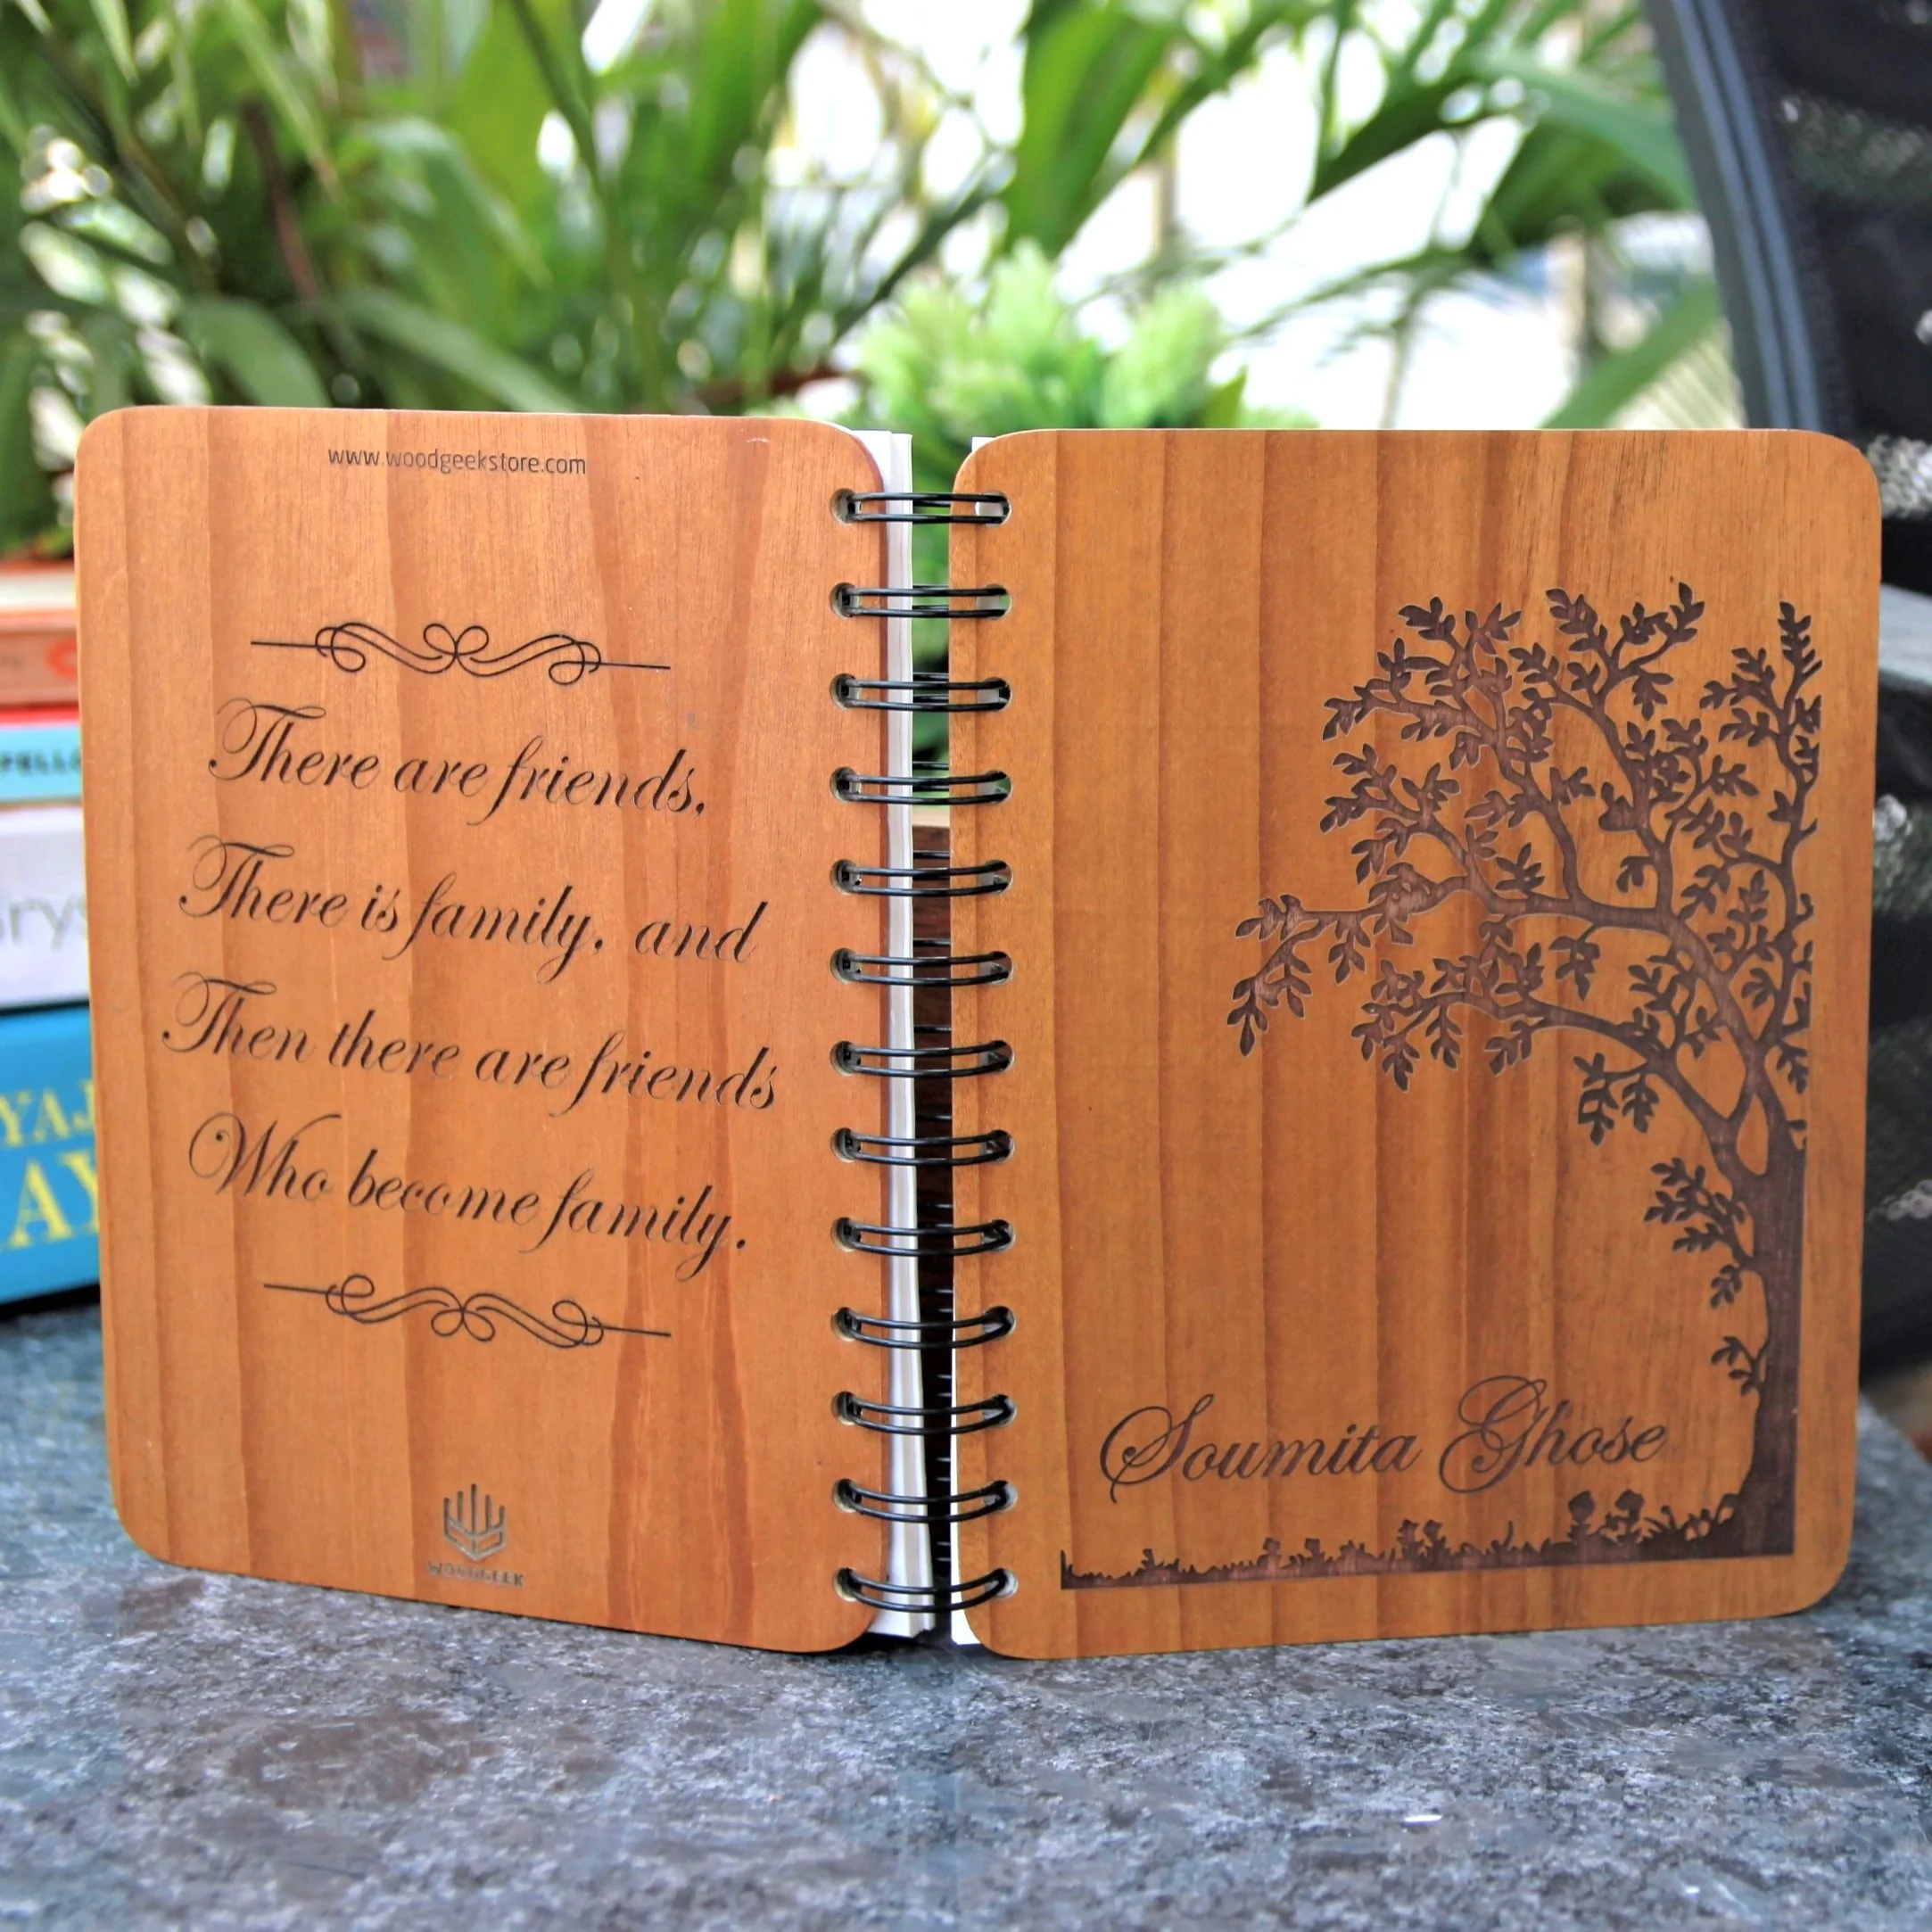 www.woodgeekstore.com
There are friends,
There is family, and
Then there are friends
Who become family.
WOODGEEK
Soumita Ghose